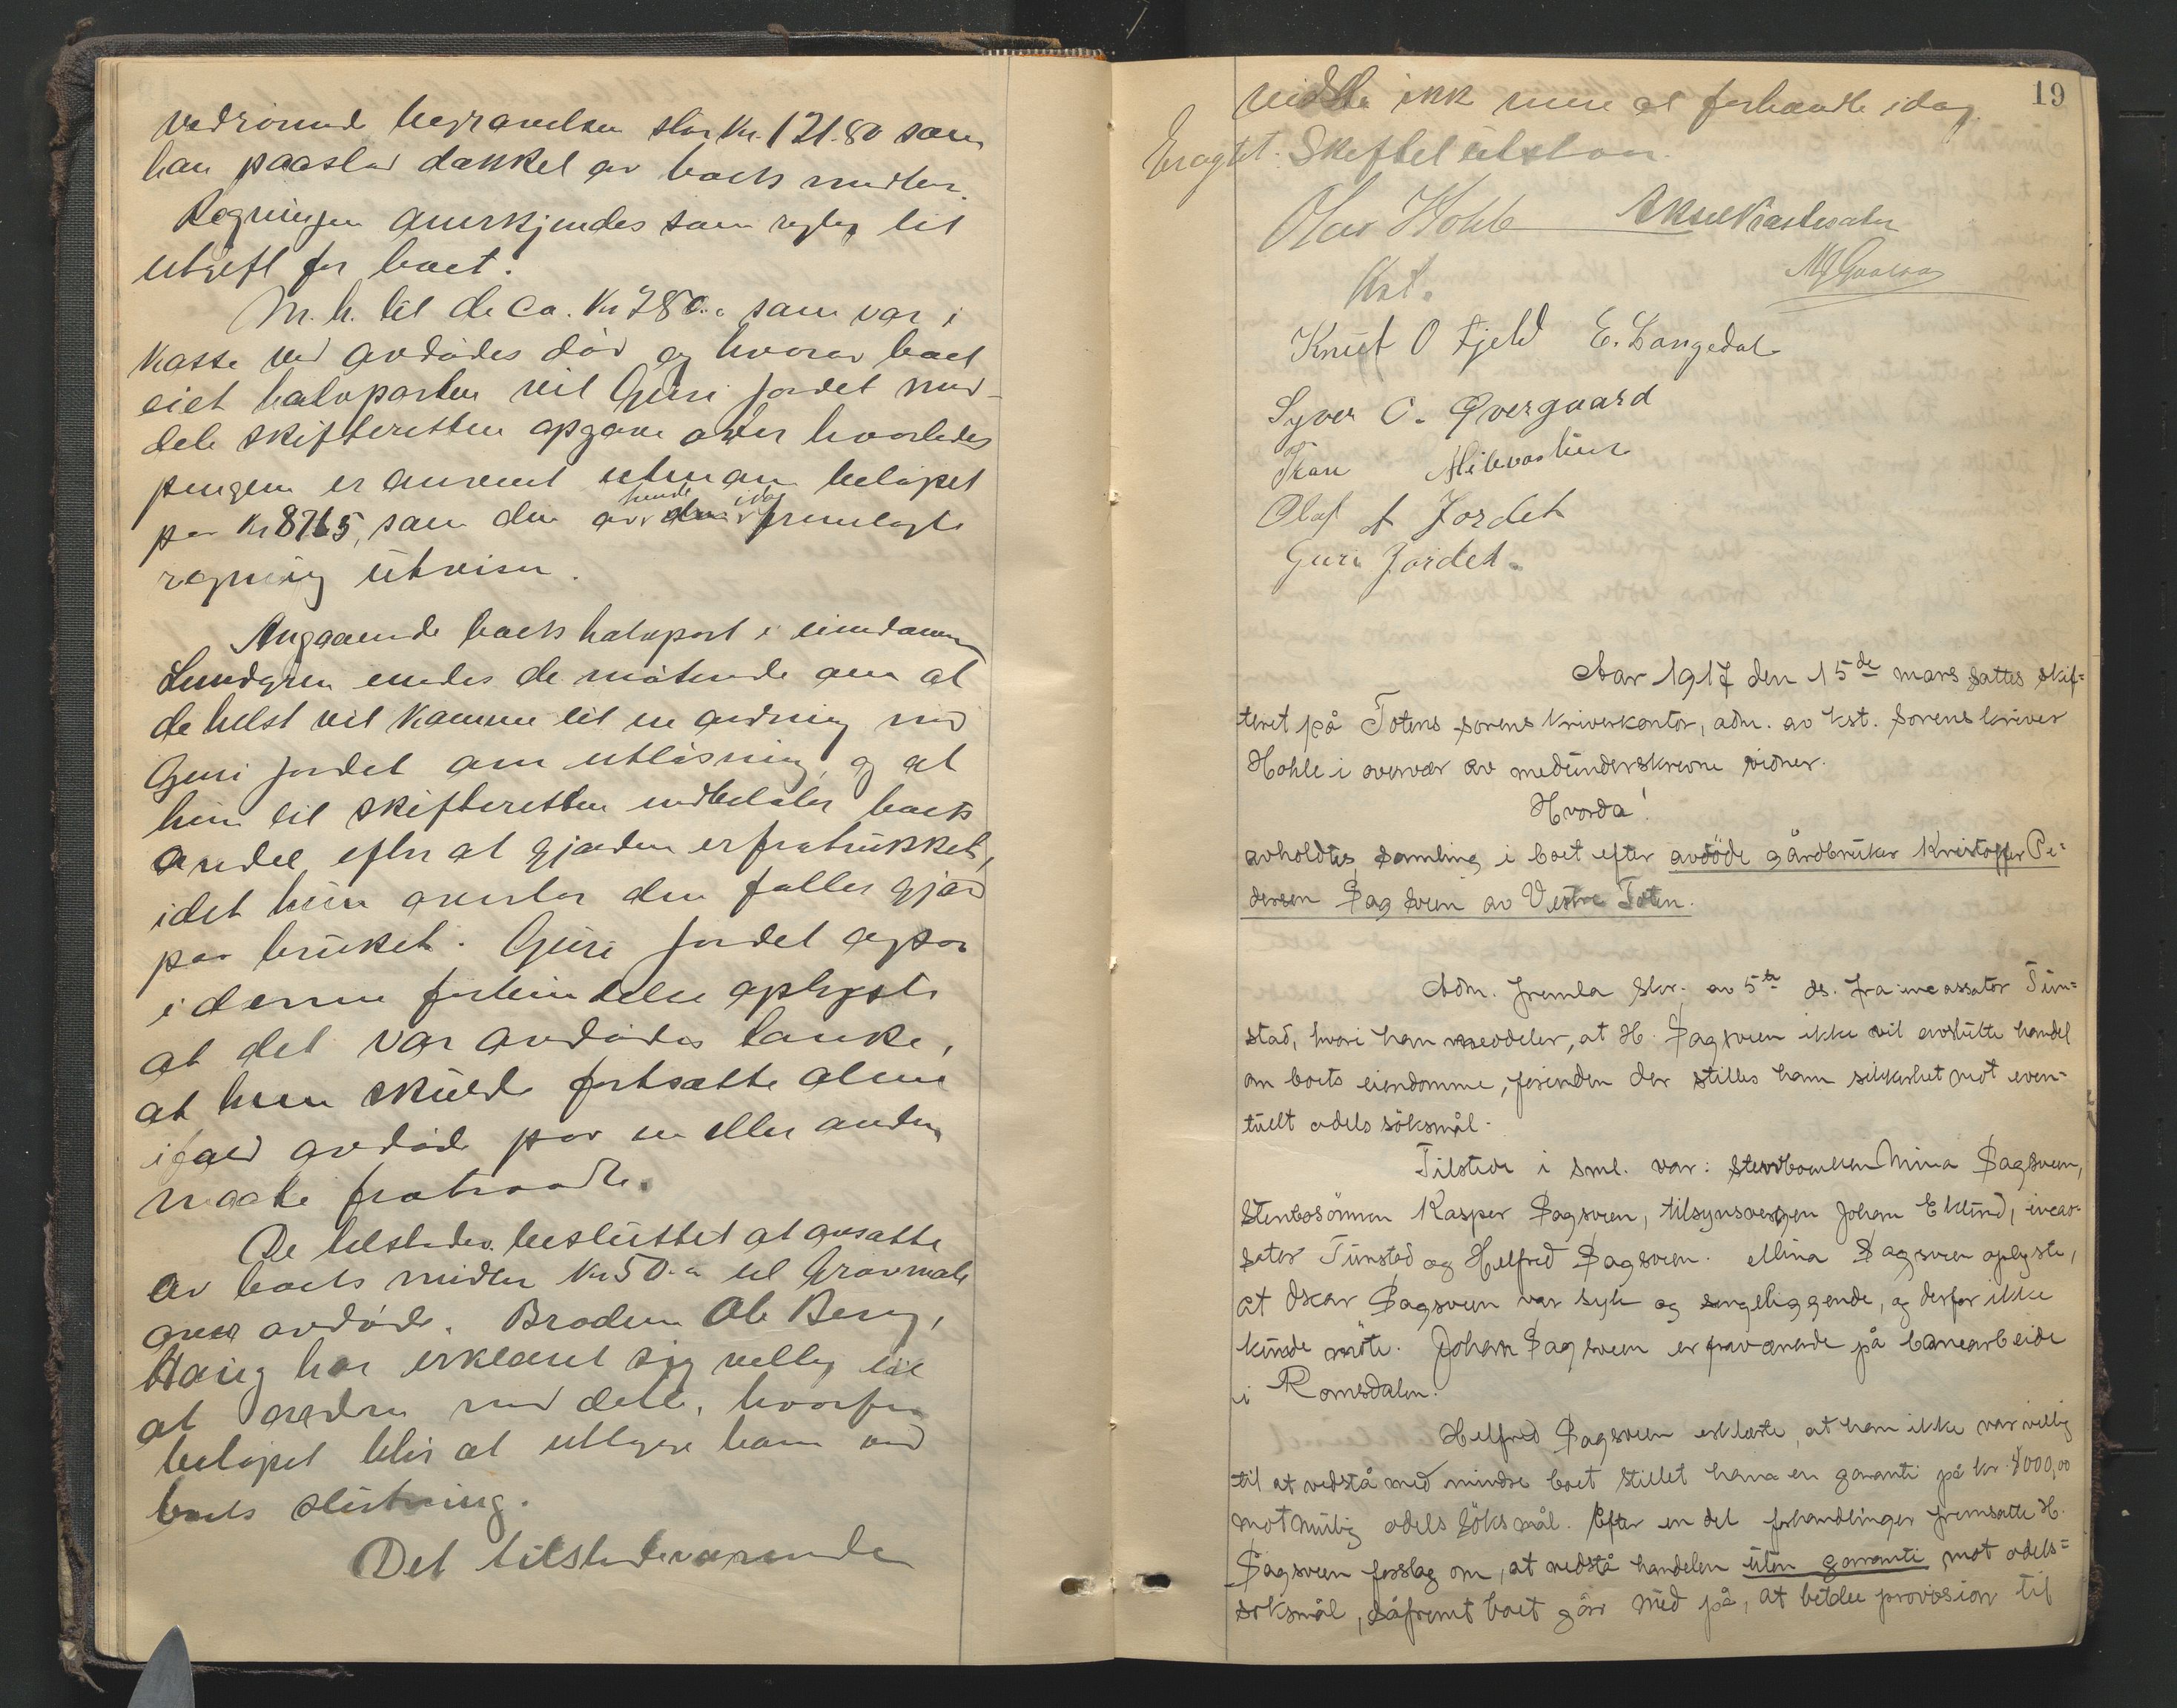 vedrörende begravelsen stor Kr. 121.80 som
han paastod dækket av boets midler.
Regningen anerkjendes som rigtig til
utgift for boet.
M. h. til de ca. Kr 280.- som var i
kasse ved avdödes död og hvorav boet
eiet halvparten vil Guri Jordet med-
dele skifteretten opgave over hvorledes
pengene er anvendt utenom belöpet
paa Kr 8765, som den av hende idag fremlagte
regning utviser.
Angaaende boets halvpart i eiendommen
Lundgren enedes de mötende om at
de helst vil komme til en ordning med
Guri Jordet om utlösning, og at
hun til skifteretten indbetaler boets
andel efter at gjælden er fratrukket,
idet hun overtar den fælles gjæld
paa bruket. Guri Jordet ogsaa
i denne forbindelse oplyste
at det var avdödes tanke,
at hun skulde fortsætte alene
ifald avdöde paa en eller anden
maate fratraadte.
De tilstedev. besluttet at avsætte
av boets midler Kr 50.- til Gravmæle
over avdöde. Broderen Ole Berg,
Haug har erklæret sig villig til
at ordne med dette, hvorfor
belöpet blir at utlegge ham ved
boets slutning.
Det tilstedeværende
19
vidste ikke mere at forhandle idag.
Eragtet: Skiftet utstaar.
Olav Hohle
Kst.
Knut O Fjeld E. Langedal
Syver C. Øvergaard
Olaf A Jordet
Guri Jordet.
Aar 1917 den 15de mars sattes skif=
teret på Totens sorenskriverkontor, adm. av kst. sorenskriver
Hohle i overvær av medunderskrevne vidner.
Hvorda!
avholdtes samling i boet efter avdöde gårdbruker Kristoffer Pe=
dersen Sagsveen av Vestre Toten.
Adm. fremla skr. av 5te ds. fra incassator Tun=
stad, hvori han meddeler, at H. Sagsveen ikke vil avslutte handel
om boets eiendomme, forinden der stilles ham sikkerhet mot even=
tuelt odelssöksmål.
Tilstede i sml. var: stervboenken Mina Sagsveen,
stervbosönnen Kasper Sagsveen, tilsynsvergen Johan Eklund, incas=
sator Tunstad og Helfred Sagsveen. Mina Sagsveen oplyste,
at Oskar Sagsveen var syk og sengeliggende, og derfor ikke
kunde möte. Johan Sagsveen er fraværende på banearbeide
i Romsdalen.
Helfred Sagsveen erklærte, at han ikke var villig
til at vedstå med mindre boet stillet ham en garanti på kr. 4000,00
mot mulig odelssöksmål. Efter en del forhandlinger fremsatte H.
Sagsveen forslag om, at vedstå handelen uten garanti mot odels=
söksmål, såfremt boet går med på, at betale provision til